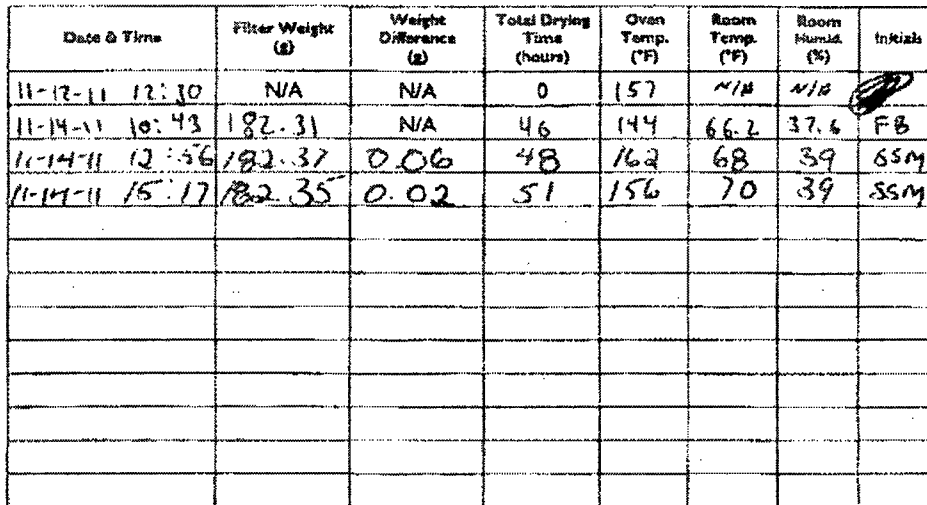 Date & Time Filter Weight (g) Weight Difference (g) Total Drying Time (hours) Oven Temp. (°F) Room Temp. (°F) Room Humid. (%) Initials
11-12-11 12:30 N/A N/A 0 157 N/A N/A
11-14-11 10:43 182.31 N/A 46 144 66.2 37.6 FB
11-14-11 12:56 182.37 0.06 48 162 68 39 SSM
11-14-11 15:17 182.35 0.02 51 156 70 39 SSM